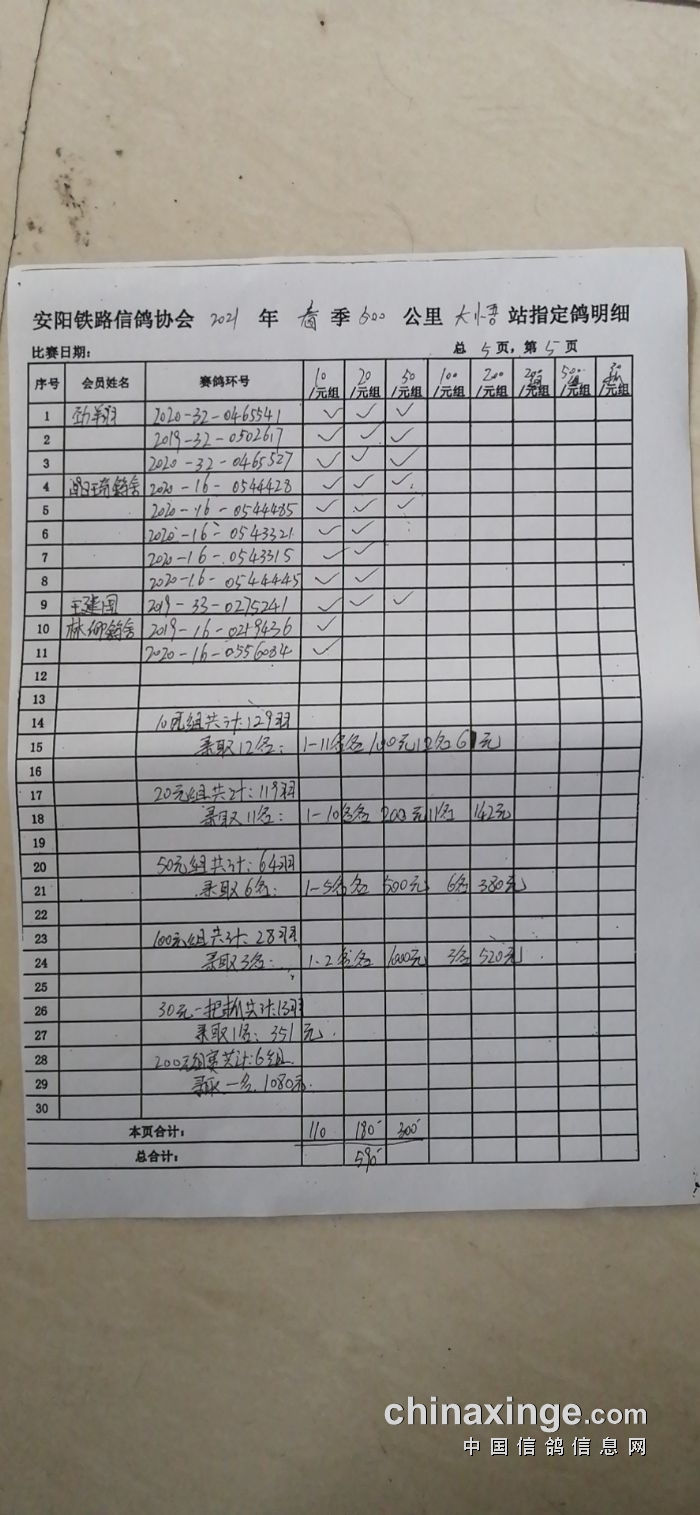 安阳铁路信鸽协会 2021 年 春 季 600 公里 大悟 站指定鸽明细
比赛日期: 总 5 页,第 5 页
序号 会员姓名 赛鸽环号 10/元组 20/元组 50/元组 100/元组 200/元组 /元组 /元组 /元组
1 2020-32-0465541 ✓ ✓ ✓
2 2019-32-0502617 ✓ ✓ ✓
3 2020-32-0465527 ✓ ✓ ✓
4 2020-16-0544428 ✓ ✓ ✓
5 2020-16-0544485 ✓ ✓ ✓
6 2020-16-0543321 ✓ ✓
7 2020-16-0543315 ✓ ✓
8 2020-16-0544445 ✓ ✓
9 王建国 2019-33-0275241 ✓ ✓ ✓
10 林 鸽舍 2019-16-0219436 ✓
11 2020-16-0556084 ✓
12
13
14 10元组共计:129羽
15 录取12名: 1-11名各100元12名61元
16
17 20元组共计:119羽
18 录取11名: 1-10名各200元11名 142元
19
20 50元组共计:64羽
21 录取6名: 1-5名各500元 6名380元
22
23 100元组共计:28羽
24 录取3名: 1-2名各1000元 3名520元
25
26 30元一把抓共计:13羽
27 录取1名:351元.
28 200元组赛共计:6组
29 录取一名.1080元.
30
本页合计: 110 180 300
总合计: 590
chinaxinge.com
中国信鸽信息网